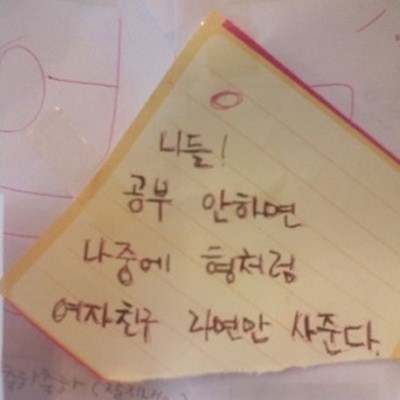 니들!
공부 안하면
나중에 형처럼
여자친구 라면만 사준다.